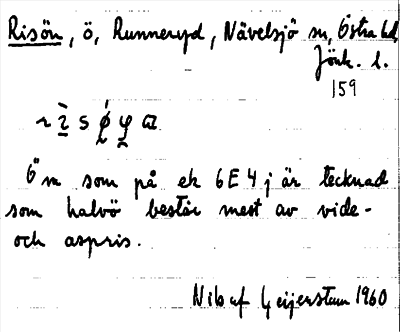 Risön, ö, Runneryd, Nävelsjö sn, Östra hd,
Jönk. l.
159
Ön som på ek 6E 4j är tecknad
som halvö består mest av vide-
och aspris.
Nils af Geijerstam 1960